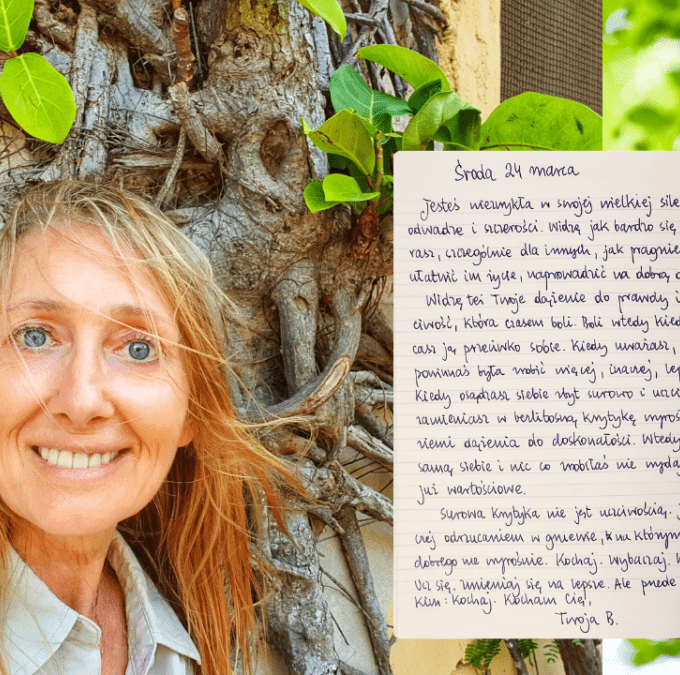 Środa 24 marca
Jesteś niezwykła w swojej wielkiej sile
odwadze i szczerości. Widzę jak bardzo się
rasz, szczególnie dla innych, jak pragnie
ułatwić im życie, naprowadzić na dobrą
Widzę też Twoje dążenie do prawdy i
ciwość, która czasem boli. Boli wtedy kied
casz ją przeciwko sobie. Kiedy uważasz,
powinnaś była zrobić więcej, inaczej, lep
Kiedy osądzasz siebie zbyt surowo i uczci
zamieniasz w bezlitosną krytykę wyroś
niemi dążenia do doskonałości. Wtedy
samą siebie i nic co zrobiłaś nie wyda
już wartościowe.
Surowa krytyka nie jest uczciwością.
czej odrzucaniem w gniewie, na którym
dobrego nie wyrośnie. Kochaj. Wybaczaj.
Ucz się, zmieniaj się na lepsze. Ale przede
kim: Kochaj. Kocham Cię,
Twoja B.